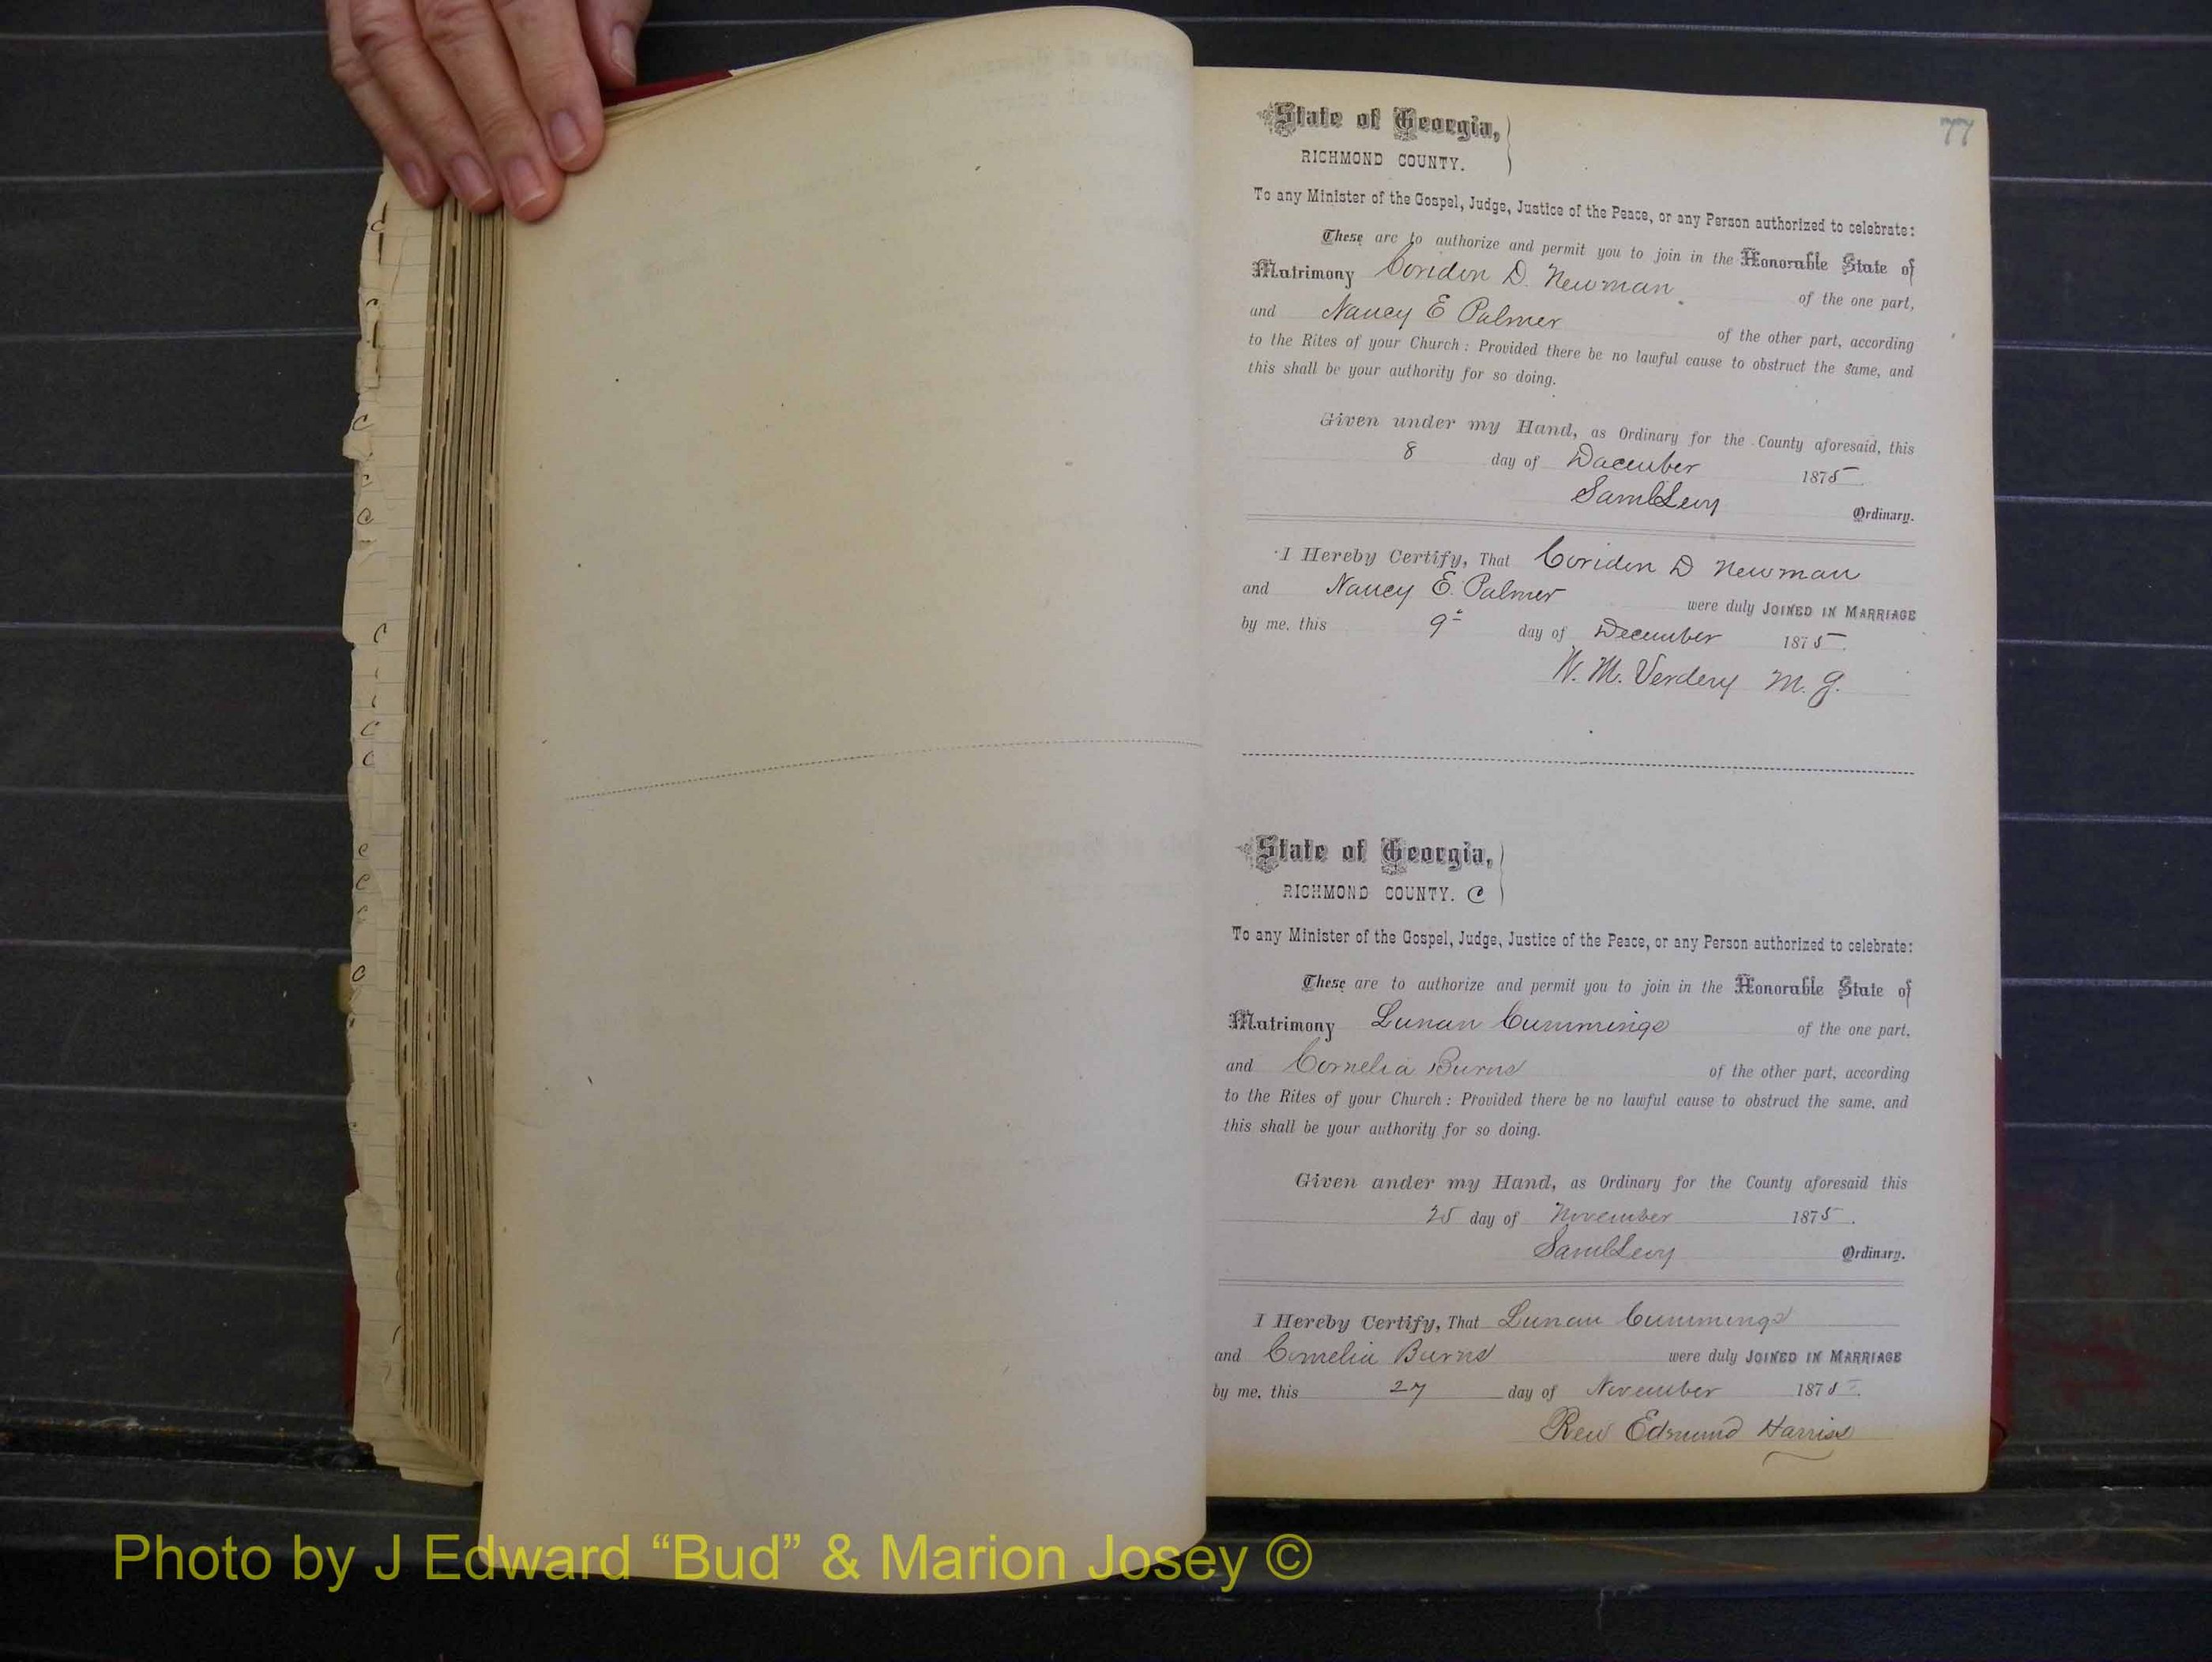 77
State of Georgia,
RICHMOND COUNTY.
To any Minister of the Gospel, Judge, Justice of the Peace, or any Person authorized to celebrate:
These are to authorize and permit you to join in the Honorable State of
Matrimony Coridon D. Newman of the one part,
and Nancy E Palmer of the other part, according
to the Rites of your Church: Provided there be no lawful cause to obstruct the same, and
this shall be your authority for so doing.
Given under my Hand, as Ordinary for the County aforesaid, this
8 day of December 1875
Saml Levy Ordinary.
I Hereby Certify, That Coridon D Newman
and Nancy E. Palmer were duly JOINED IN MARRIAGE
by me, this 9th day of December 1875.
W. M. Verdery M. G.
State of Georgia,
RICHMOND COUNTY. C
To any Minister of the Gospel, Judge, Justice of the Peace, or any Person authorized to celebrate:
These are to authorize and permit you to join in the Honorable State of
Matrimony Lunan Cummings of the one part,
and Cornelia Burns of the other part, according
to the Rites of your Church: Provided there be no lawful cause to obstruct the same, and
this shall be your authority for so doing.
Given under my Hand, as Ordinary for the County aforesaid this
25 day of November 1875.
Saml Levy Ordinary.
I Hereby Certify, That Lunan Cummings
and Cornelia Burns were duly JOINED IN MARRIAGE
by me, this 27 day of November 1875.
Rev Edmund Harriss
Photo by J Edward “Bud” & Marion Josey ©